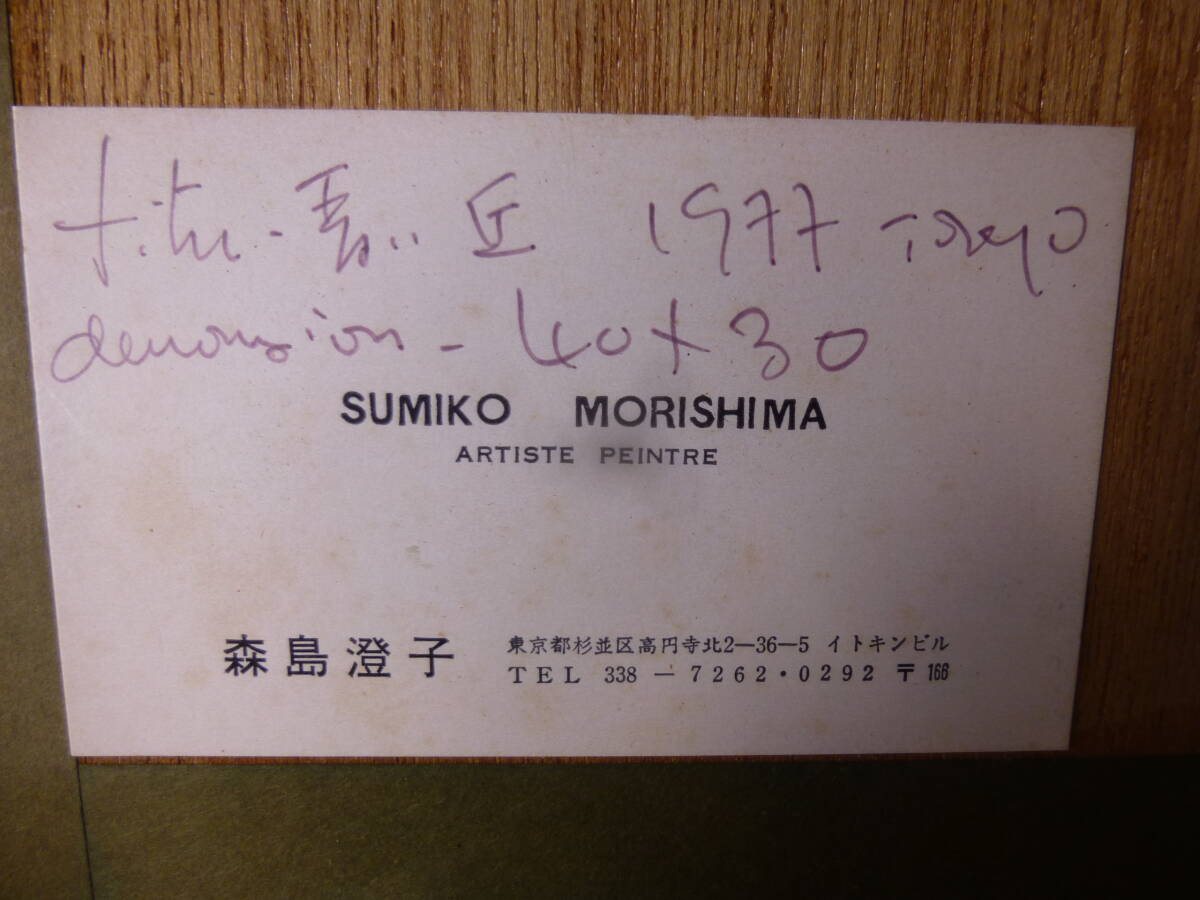 titre - 青い 丘 1977 Tokyo
demension - 40 x 30
SUMIKO MORISHIMA
ARTISTE PEINTRE
森島澄子
東京都杉並区高円寺北2―36―5 イトキンビル
TEL 338 ― 7262・0292 〒166